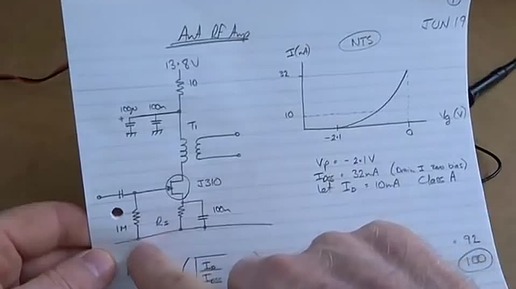 JUN 19
Ant RF Amp
NTS
13.8V
10
100µ
100n
+
T1
J310
1M
Rs
100n
I(mA)
32
10
-2.1
0
Vg(V)
Vp = -2.1V
IDSS = 32mA (Drain I zero bias)
Let ID = 10mA Class A.
ID
IDSS
= 92
100